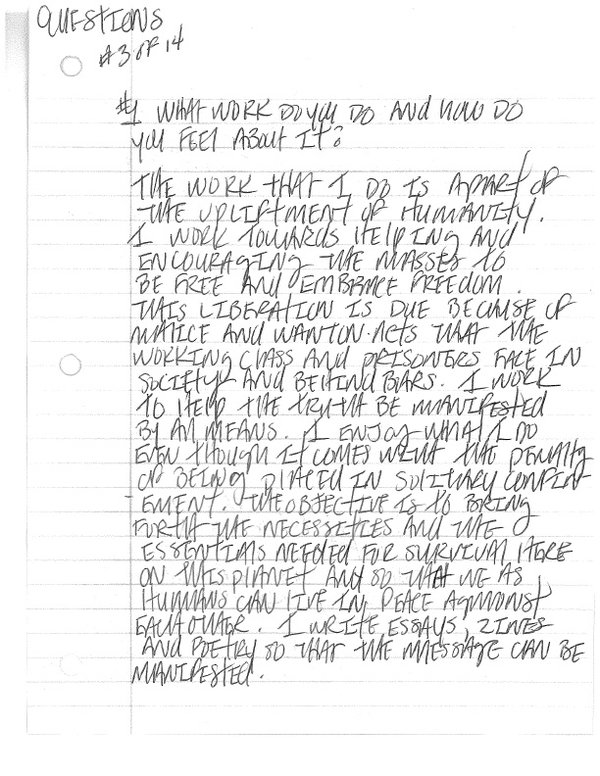 QUESTIONS
#3 OF 14
#1 WHAT WORK DO YOU DO AND HOW DO
YOU FEEL ABOUT IT?
THE WORK THAT I DO IS APART OF
THE UPLIFTMENT OF HUMANITY.
I WORK TOWARDS HELPING AND
ENCOURAGING THE MASSES TO
BE FREE AND EMBRACE FREEDOM.
THIS LIBERATION IS DUE BECAUSE OF
MALICE AND WANTON ACTS THAT THE
WORKING CLASS AND PRISONERS FACE IN
SOCIETY AND BEHIND BARS. I WORK
TO HELP THE TRUTH BE MANIFESTED
BY ALL MEANS. I ENJOY WHAT I DO
EVEN THOUGH IT COMES WITH THE PENALTY
OF BEING PLACED IN SOLITARY CONFIN-
EMENT. THE OBJECTIVE IS TO BRING
FORTH THE NECESSITIES AND THE
ESSENTIALS NEEDED FOR SURVIVAL HERE
ON THIS PLANET AND SO THAT WE AS
HUMANS CAN LIVE IN PEACE AGMONST
EACHOTHER. I WRITE ESSAYS, ZINES
AND POETRY SO THAT THE MESSAGE CAN BE
MANIFESTED.